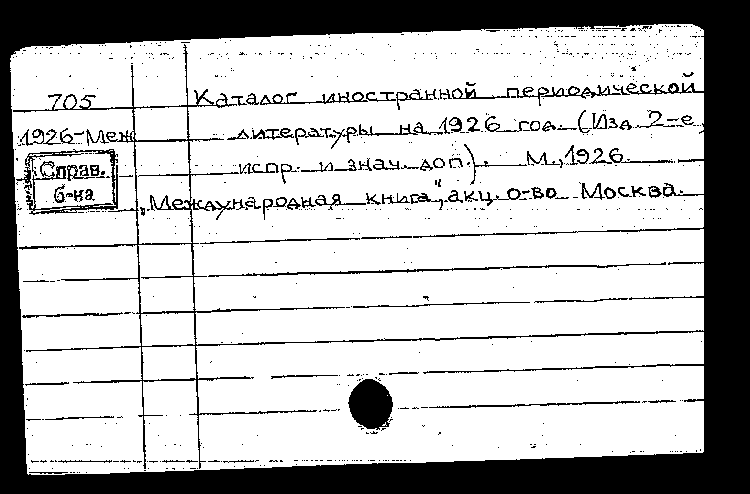 705
Каталог иностранной периодической
1926-Меж
литературы на 1926 год. (Изд 2-е,
Справ.
б-ка
испр. и знач. доп.). М., 1926.
„Международная книга", акц. о-во Москва.